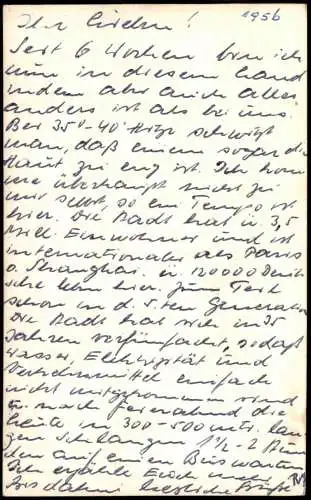 1956
Ihr Lieben!
Seit 6 Wochen bin ich
nun in diesem Land
indem aber auch alles
anders ist als bei uns.
Bei 35°-40° Hitze schwitzt
man, daß einem sogar die
Haut zu eng ist. Ich kom
me überhaupt nicht zu
mir selbst, so ein Tempo ist
hier. Die Stadt hat ü. 3,5
Mill. Einwohner und ist
internationaler als Paris
o. Shanghai. ü. 120000 Deut
sche leben hier. zum Teil
schon in d. 5.ten Generation
Die Stadt hat sich in 35
Jahren verfünffacht, sodaß
Wasser, Elektrizität und
Verkehrsmittel einfach
nicht mitgekommen sind
nach Feierabend die
Leute in 300-500 mtr. lan
gen Schlangen 1½-2 Stun
den auf einen Bus warten.
Ich erzähle Euch
Bis dahin herzliche Grüße